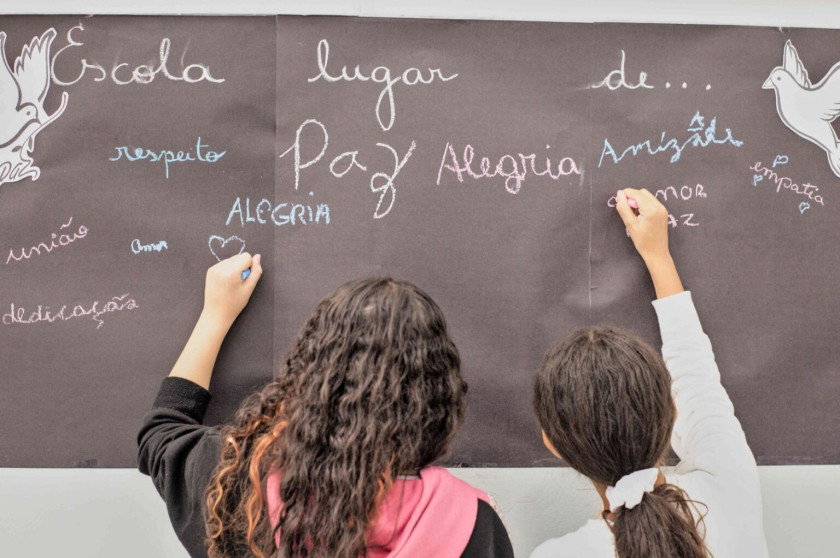 Escola lugar de...
respeito Paz Alegria Amizade
empatia
ALEGRIA
AMOR
união Amor
dedicação